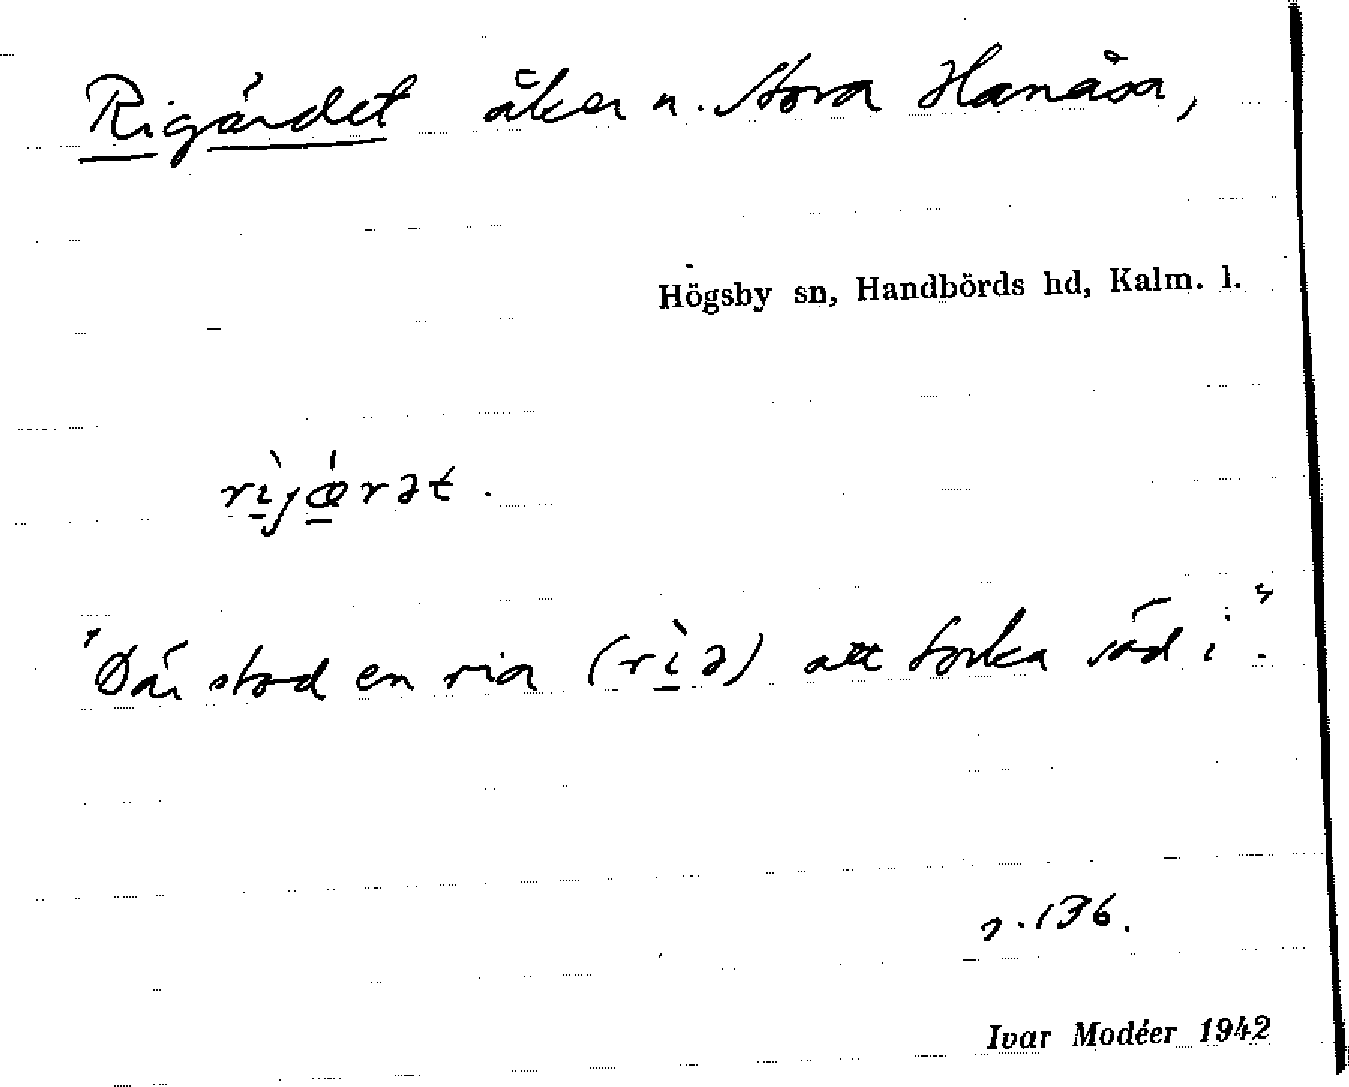 Rigärdet åker n. Stora Hanåsa,
Högsby sn, Handbörds hd, Kalm. l.
rìjǽrət.
"Där stod en ria (rìə) att torka säd i".
s. 136.
Ivar Modéer 1942